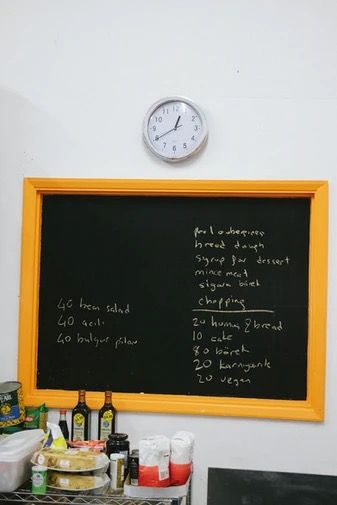 12
1
2
3
4
5
6
7
8
9
10
11
40 bean salad
40 acili
40 bulgur pilav
peel aubergines
bread dough
syrup for dessert
mince meat
sigara börek
chopping
20 homus & bread
10 cake
80 börek
20 karnıyarık
20 vegan